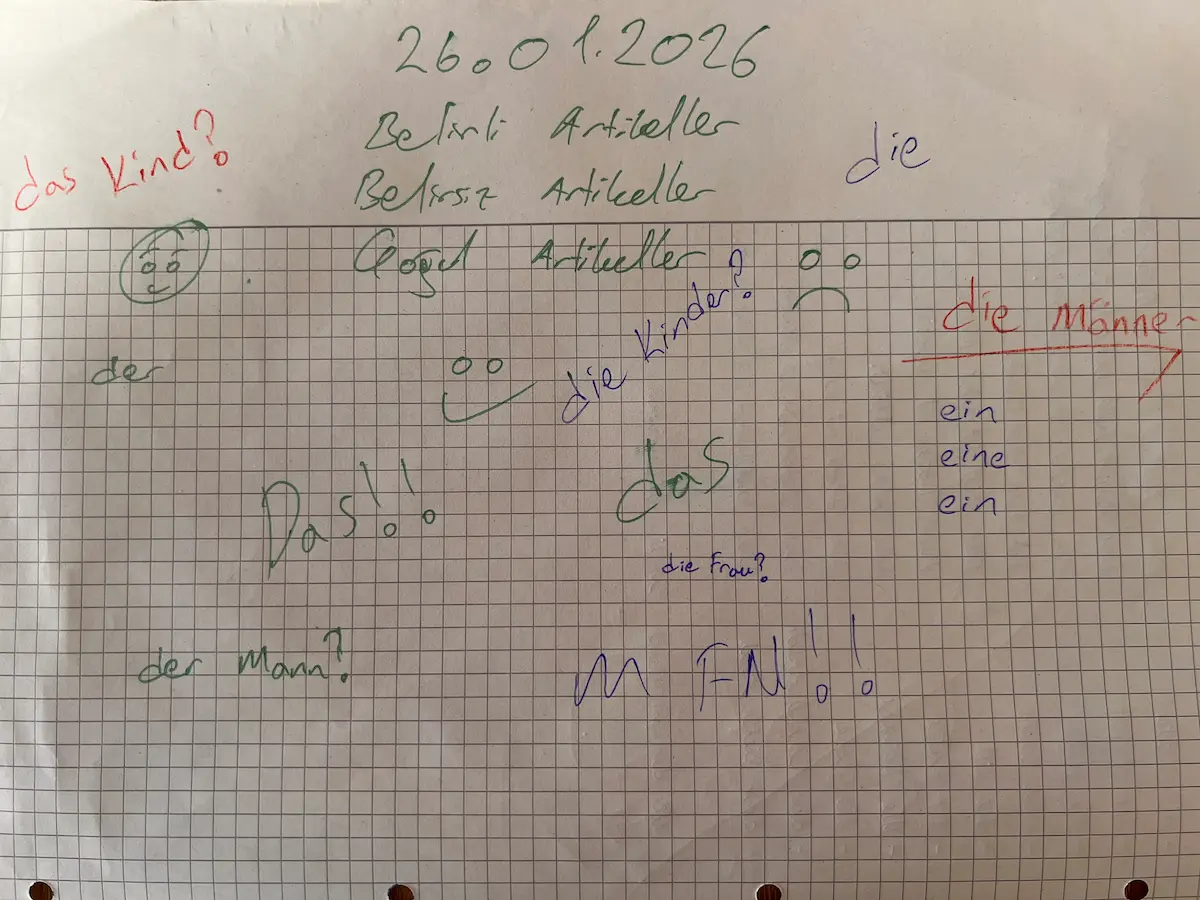 26.01.2026
Belirli Artikeller
das Kind?
die
Belirsiz Artikeller
Çoğul Artikeller
die Kinder?
die Männer
der
ein
eine
das
Das!!
ein
die Frau?
der Mann?
M F N!!